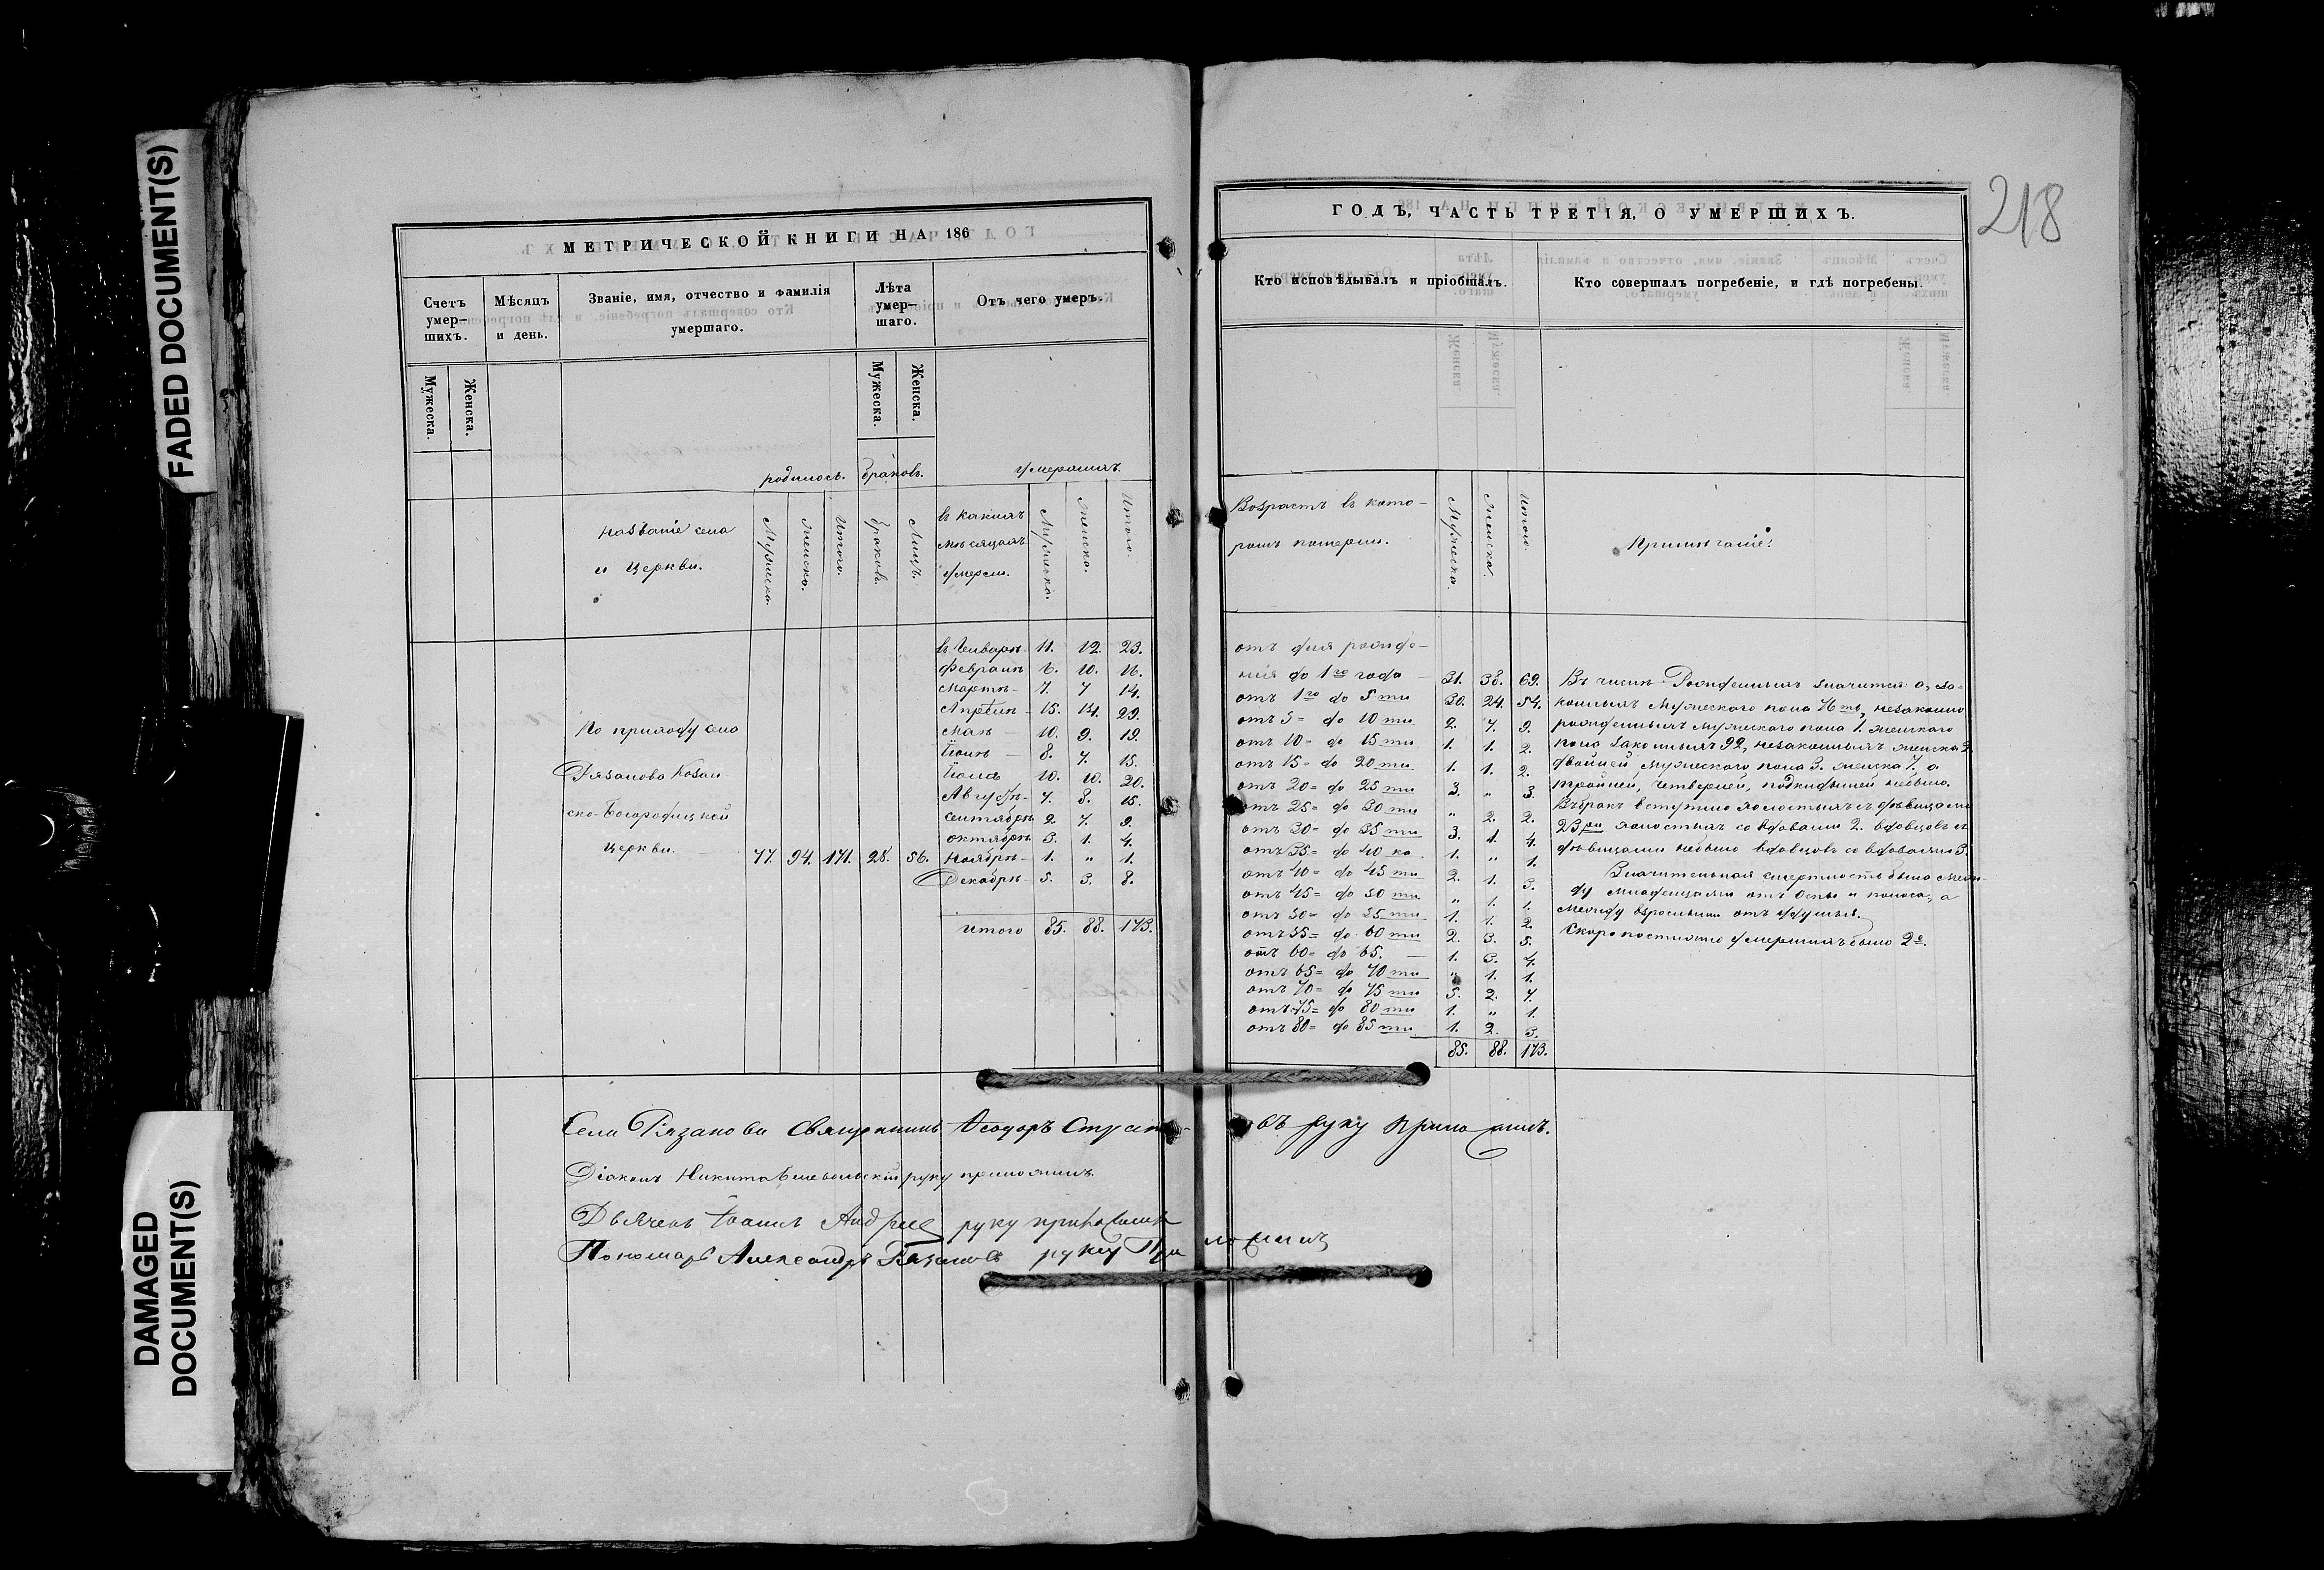 FADED DOCUMENT(S)
DAMAGED
DOCUMENT(S)
МЕТРИЧЕСКОЙ КНИГИ НА 186
Счетъ умер— шихъ.
Мѣсяцъ и день.
Званіе, имя, отчество и фамилія
умершаго.
Лѣта умер— шаго.
Отъ чего умеръ.
Мужеска.
Женска.
Мужеска.
Женска.
родилось. браковъ. умершихъ.
Названіе села
и церкви.
Мужеска. Женска. Итого. браковъ. Лицъ.
въ какихъ
мѣсяцахъ
умерли.
Мужеска. Женска. Итого.
въ Январѣ 11. 12. 23.
Февралѣ 6. 10. 16.
Мартѣ 7. 7 14.
Апрѣлѣ 15. 14. 29.
Маѣ 10. 9. 19.
Іюнѣ 8. 7. 15.
Іюлѣ 10. 10. 20.
Августѣ 7. 8. 15.
Сентябрѣ 2. 7. 9.
Октябрѣ 3. 1. 4.
Ноябрѣ 1. " 1.
Декабрѣ 5. 3. 8.
итого 85. 88. 173.
По приходу села
Рязанова Казан-
ско-Богородицкой
церкви. 77. 94. 171. 28. 56.
218
ГОДЪ, ЧАСТЬ ТРЕТІЯ, О УМЕРШИХЪ.
Кто исповѣдывалъ и пріобщалъ.
Кто совершалъ погребеніе, и гдѣ погребены.
Возрастъ въ кото-
ромъ померли.
Мужеска Женска. Итого.
Примѣчаніе:
отъ дня рожде-
нія до 1го года 31. 38. 69.
отъ 1го до 5 ти 30. 24. 54.
отъ 5= до 10 ти 2. 7. 9.
отъ 10= до 15 ти 1. 1. 2.
отъ 15= до 20 ти 1. 1. 2.
отъ 20= до 25 ти 3. " 3.
отъ 25= до 30 ти " 2. 2.
отъ 30= до 35 ти 3. 1. 4.
отъ 35= до 40 ка 1. " 1.
отъ 40= до 45 ти 2. 1. 3.
отъ 45= до 50 ти " 1. 1.
отъ 50= до 55 ти 1. 1. 2.
отъ 55= до 60 ти 2. 3. 5.
отъ 60= до 65. 1. 3. 4.
отъ 65= до 70 ти " 1. 1.
отъ 70= до 75 ти 5. 2. 7.
отъ 75= до 80 ти 1. " 1.
отъ 80= до 85 ти 1. 2. 3.
85. 88. 173.
Въ числѣ Рожденныхъ значится: а, за-
конныхъ Мужескаго пола 76ть, незаконно
рожденныхъ мужескаго пола 1. женскаго
пола законныхъ 92, незаконныхъ женска 2.
двойней мужескаго пола 3. женска 7. а
тройней, четверней, подкидышей небыло.
Въ бракъ вступило холостыхъ съ дѣвицами
23ри холостыхъ со вдовами 2. вдовцовъ съ
дѣвицами небыло вдовцовъ со вдовами 3.
Значительная смертность была меж-
ду младенцами отъ оспы и поноса, а
между взрослыми отъ
Скоропостижно умершихъ было 2е.
Села Рязанова Священникъ Ѳеодоръ въ руку приложилъ.
Діаконъ Никита руку приложилъ.
Дьячекъ Іоаннъ руку приложилъ
Пономарь Александръ руку Приложилъ